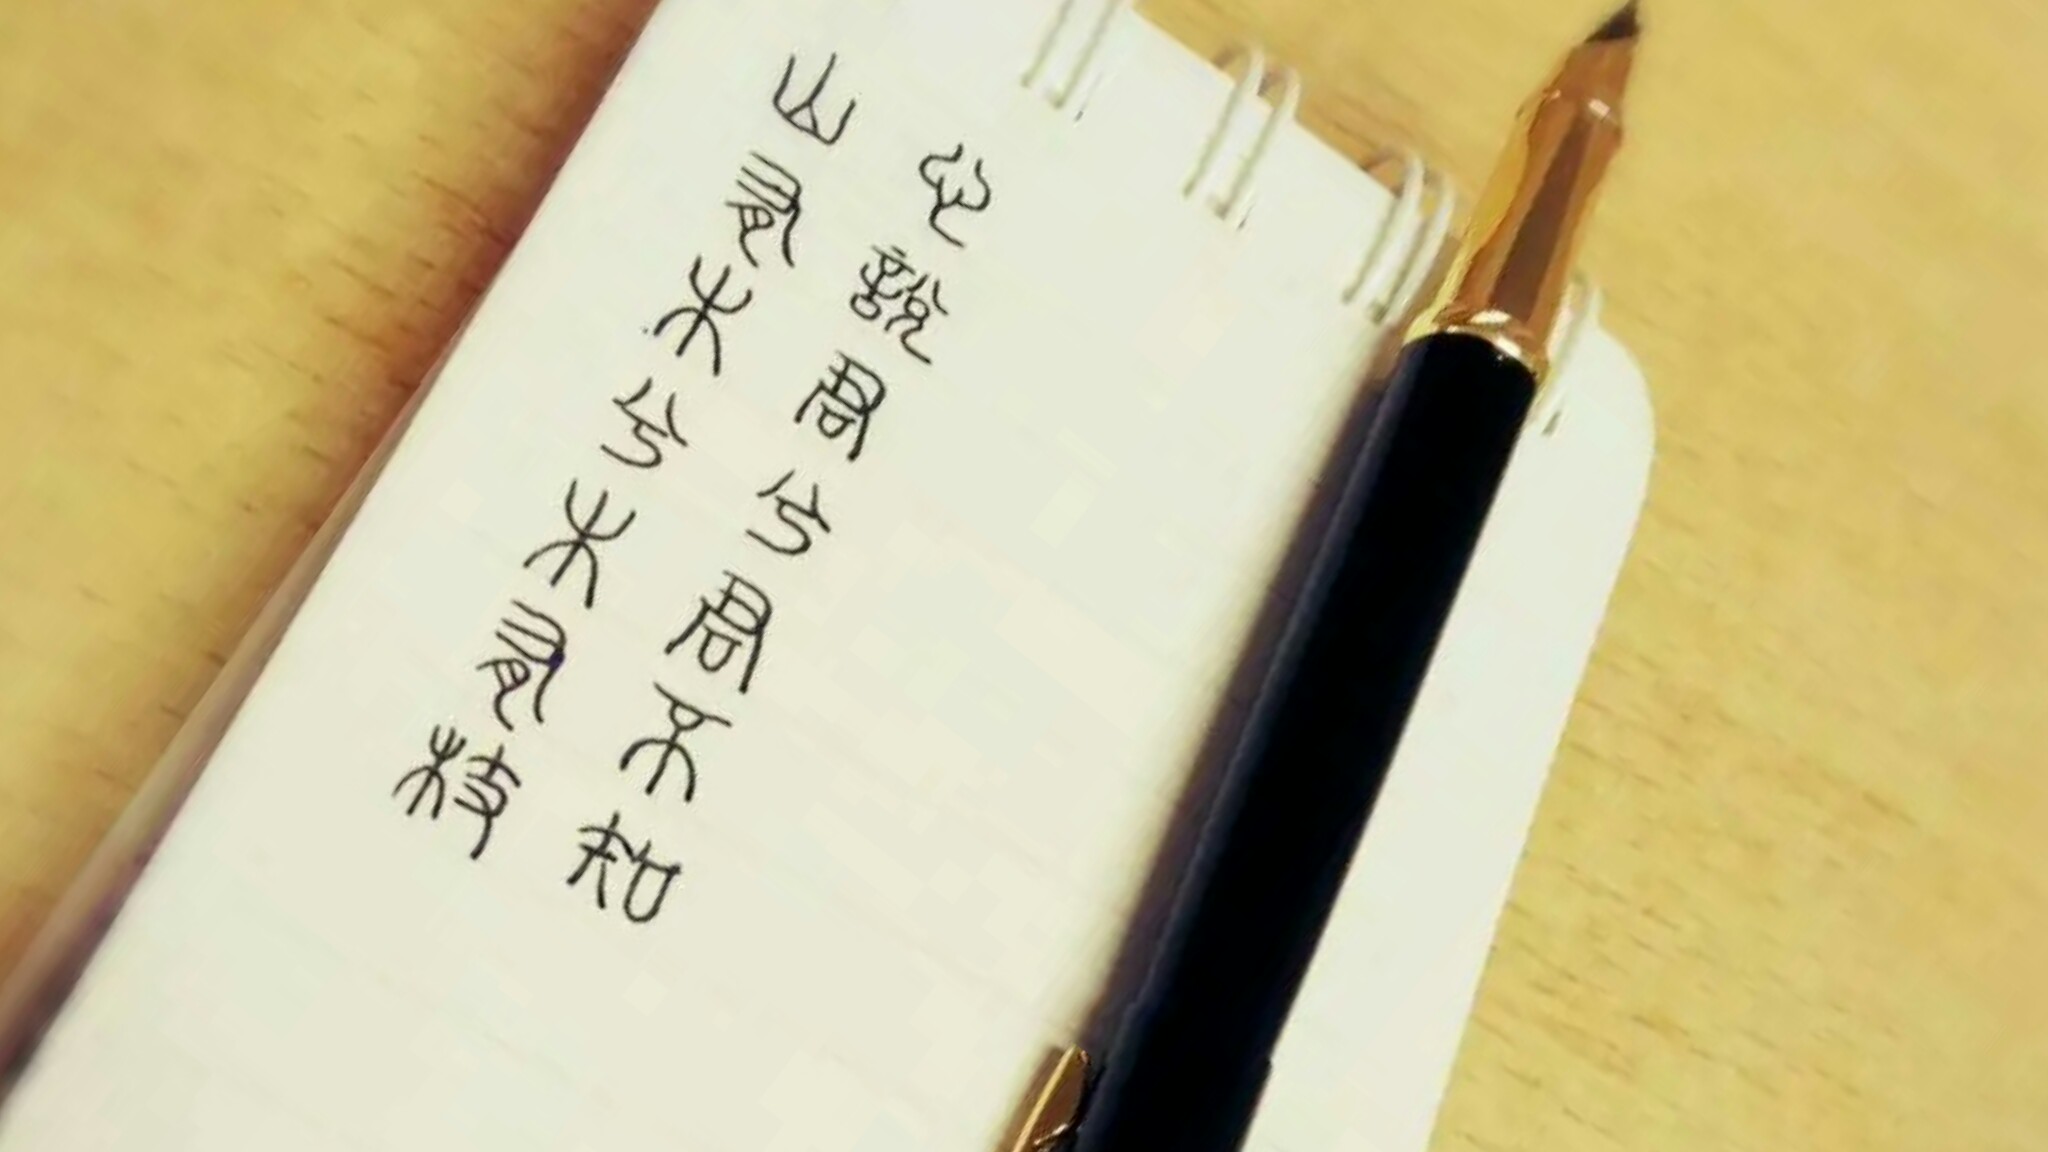 山有木兮木有枝
心說君兮君不知